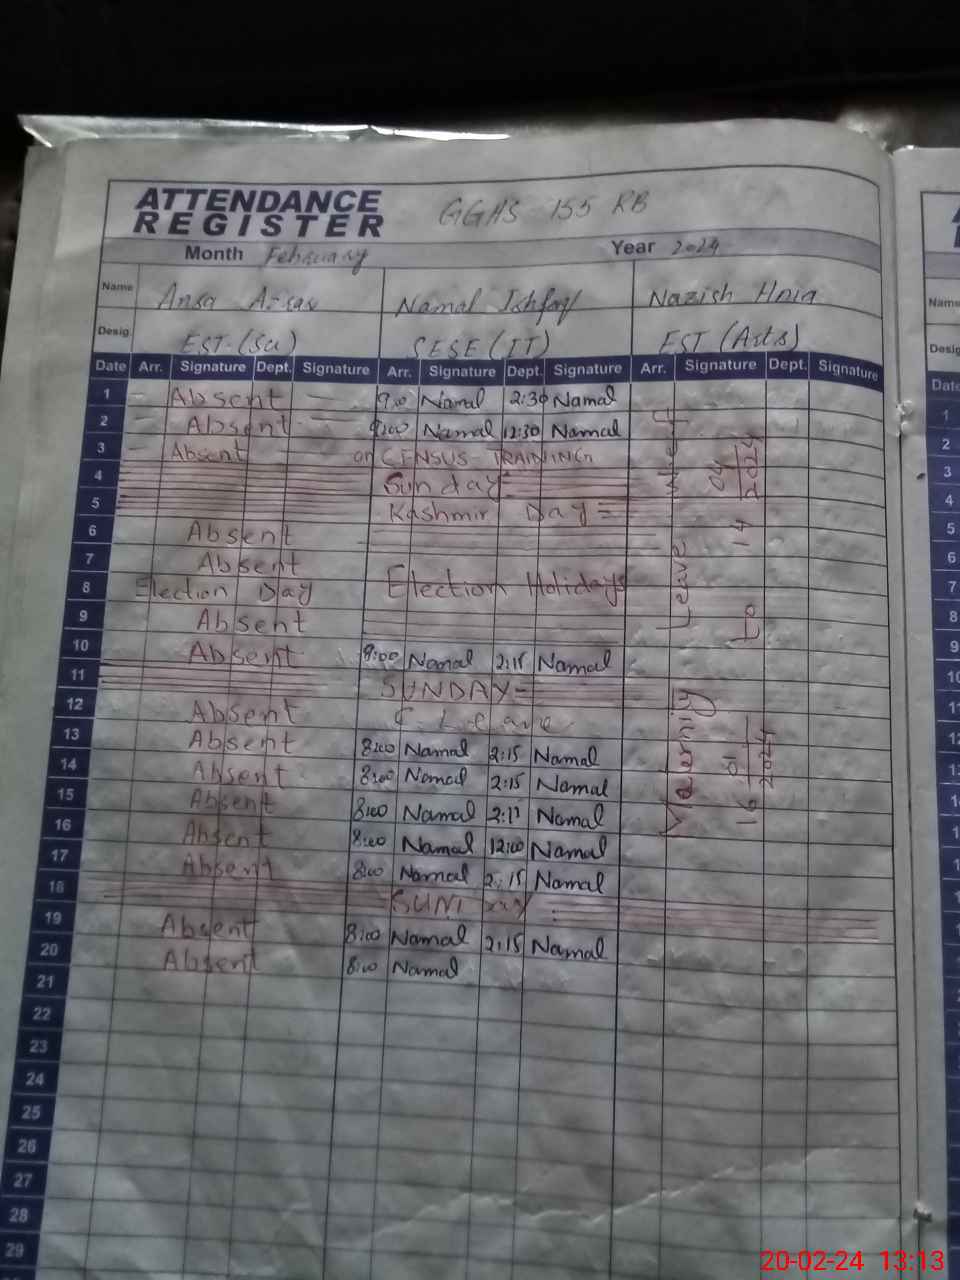 ATTENDANCE
REGISTER
GGHS 155 RB
Month February Year 2024
Name Ansa Namal Ishfaq Nazish
Desig. EST (Sci) SESE (IT) EST (Arts)
Date Arr. Signature Dept. Signature Arr. Signature Dept. Signature Arr. Signature Dept. Signature
1 Absent 9:00 Namal 2:30 Namal
2 Absent 9:00 Namal 12:30 Namal
3 Absent on CENSUS TRAINING
4 Sunday
5 Kashmir Day
6 Absent
7 Absent
8 Election Day Election Holidays
9 Absent
10 Absent 8:00 Namal 2:15 Namal
11 SUNDAY
12 Absent C. Leave
13 Absent 8:00 Namal 2:15 Namal
14 Absent 8:00 Namal 2:15 Namal
15 Absent 8:00 Namal 2:11 Namal
16 Absent 8:00 Namal 12:00 Namal
17 Absent 8:00 Namal 2:15 Namal
18 SUNDAY
19 Absent 8:00 Namal 2:15 Namal
20 Absent 8:00 Namal
21
22
23
24
25
26
27
28
29
Leave
16 01 2024 To 14 2024
Name
Desig
Date
1
2
3
4
5
6
7
8
9
10
11
12
13
20-02-24 13:13